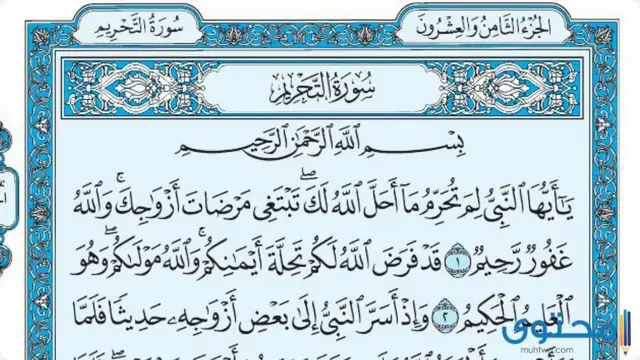 الجزء الثامن والعشرون
سورة التحريم
سُورَةُ التَّحْرِيمِ
بِسْمِ اللَّهِ الرَّحْمَٰنِ الرَّحِيمِ
يَا أَيُّهَا النَّبِيُّ لِمَ تُحَرِّمُ مَا أَحَلَّ اللَّهُ لَكَ ۖ تَبْتَغِي مَرْضَاتَ أَزْوَاجِكَ ۚ وَاللَّهُ
غَفُورٌ رَّحِيمٌ ١ قَدْ فَرَضَ اللَّهُ لَكُمْ تَحِلَّةَ أَيْمَانِكُمْ ۚ وَاللَّهُ مَوْلَاكُمْ ۖ وَهُوَ
الْعَلِيمُ الْحَكِيمُ ٢ وَإِذْ أَسَرَّ النَّبِيُّ إِلَىٰ بَعْضِ أَزْوَاجِهِ حَدِيثًا فَلَمَّا
محتوى
muhtwa.com